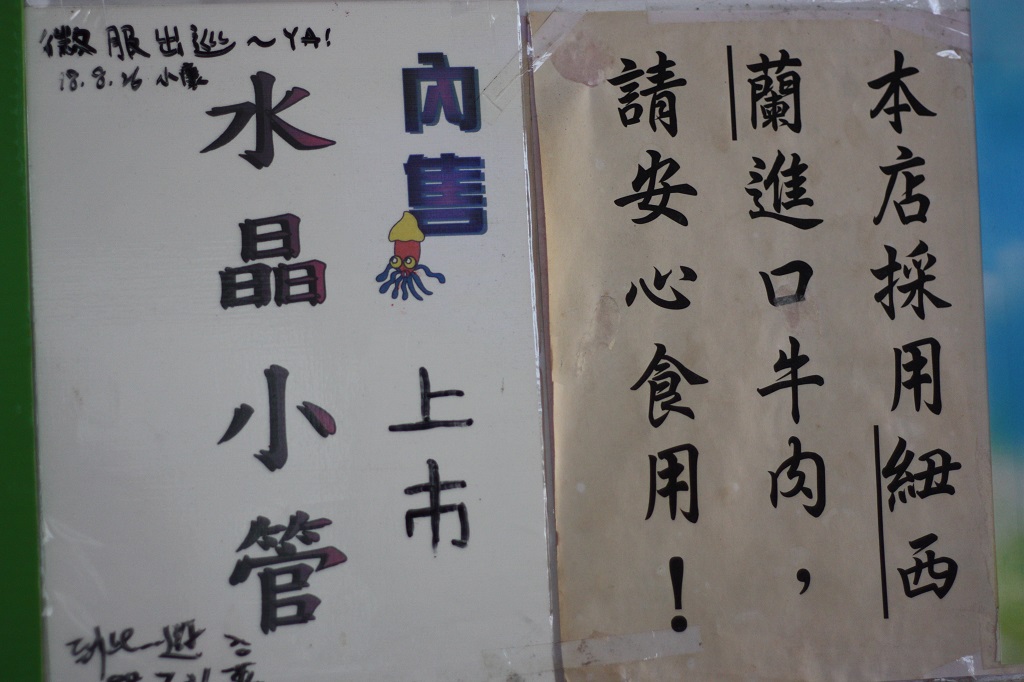 本店採用紐西
蘭進口牛肉，
請安心食用！
內售
上市
水晶小管
微服出巡～YA!
18.8.26 小康
到此一遊